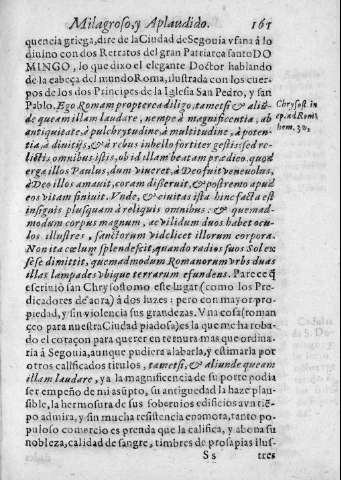 Milagroso, y Aplaudido. 161
quencia griega, dire de la Ciudad de Segouia vfana à lo
diuino con dos Retratos del gran Patriarca santo DO
MINGO, lo que dixo el elegante Doctor hablando
de la cabeça del mundo Roma, ilustrada con los cuer-
pos de los dos Principes de la Iglesia San Pedro, y san
Pablo. Ego Romam propterea diligo, tametsi & aliũ-
de queam illam laudare, nempè à magnificentia, ab
antiquitate, à pulchrytudine, à multitudine, à poten-
tia, à diuitijs, & à rebus in bello fortiter gestis: sed re-
lictis omnibus istis, ob id illam beatam prædico, quod
erga illos Paulus, dum viueret, à Deo fuit beneuolus,
à Deo illos amauit, coram disseruit, & postremo apud
eos vitam finiuit. Vnde, & ciuitas ista hinc facta est
insignis plusquam à reliquis omnibus: & quemad-
modum corpus magnum, ac vilidum duos habet ocu-
los illustres, sanctorum videlicet illorum corpora.
Non ita cœlum splendescit, quando radios suos Sol ex
sese dimittit, quemadmodum Romanorum vrbs duas
illas lampades vbique terrarum efundens. Parece q̃
escriuiò san Chrysostomo este lugar (como los Pre-
dicadores de aora) à dos luzes: pero con mayor pro-
piedad, y sin violencia sus grandezas. Vna cosa (roman
çeo para nuestra Ciudad piadosa) es la que me ha roba-
do el coraçon para querer en ternura mas que ordina-
ria à Segouia, aunque pudiera alabarla, y estimarla por
otros calificados titulos, tametsi, & aliunde queam
illam laudare, ya la magnificencia de su porte podia
ser empeño de mi asũpto, su antiguedad la haze plau-
sible, la hermosura de sus soberuios edificios avn tiẽ-
po admira, y sin mucha resistencia enamora, tanto po-
puloso comercio es prenda que la califica, y abona su
nobleza, calidad de sangre, timbres de prosapias ilus-
Ss tres
Chrysost. in
ep. ad Rom.
hom.